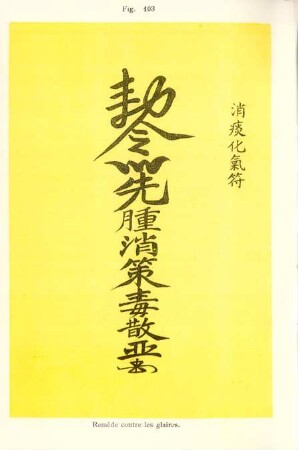 Fig. 103
消痰化氣符
勅令
先
腫消策毒散
Remède contre les glaires.